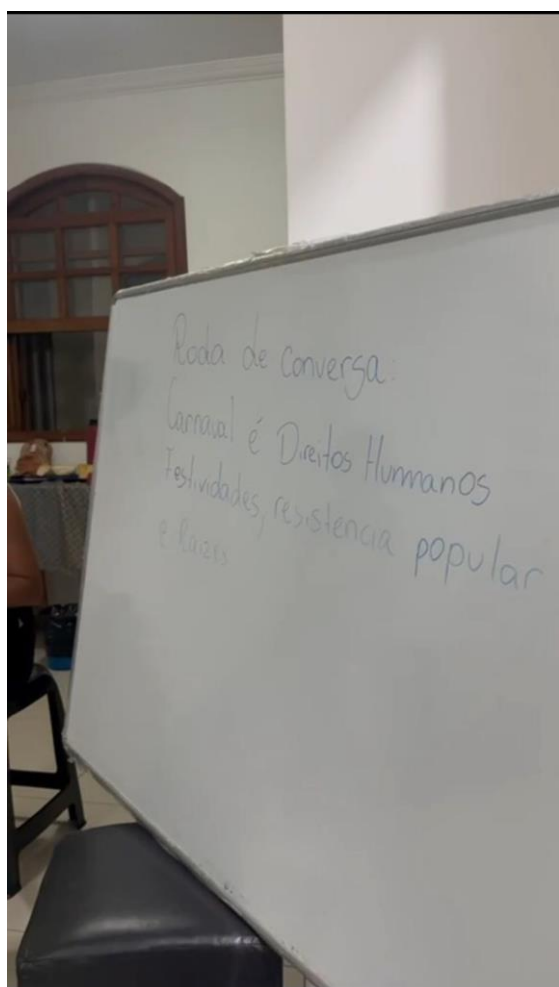 Roda de conversa:
Carnaval é Direitos Humanos
Festividades, resistência popular
e Raízes